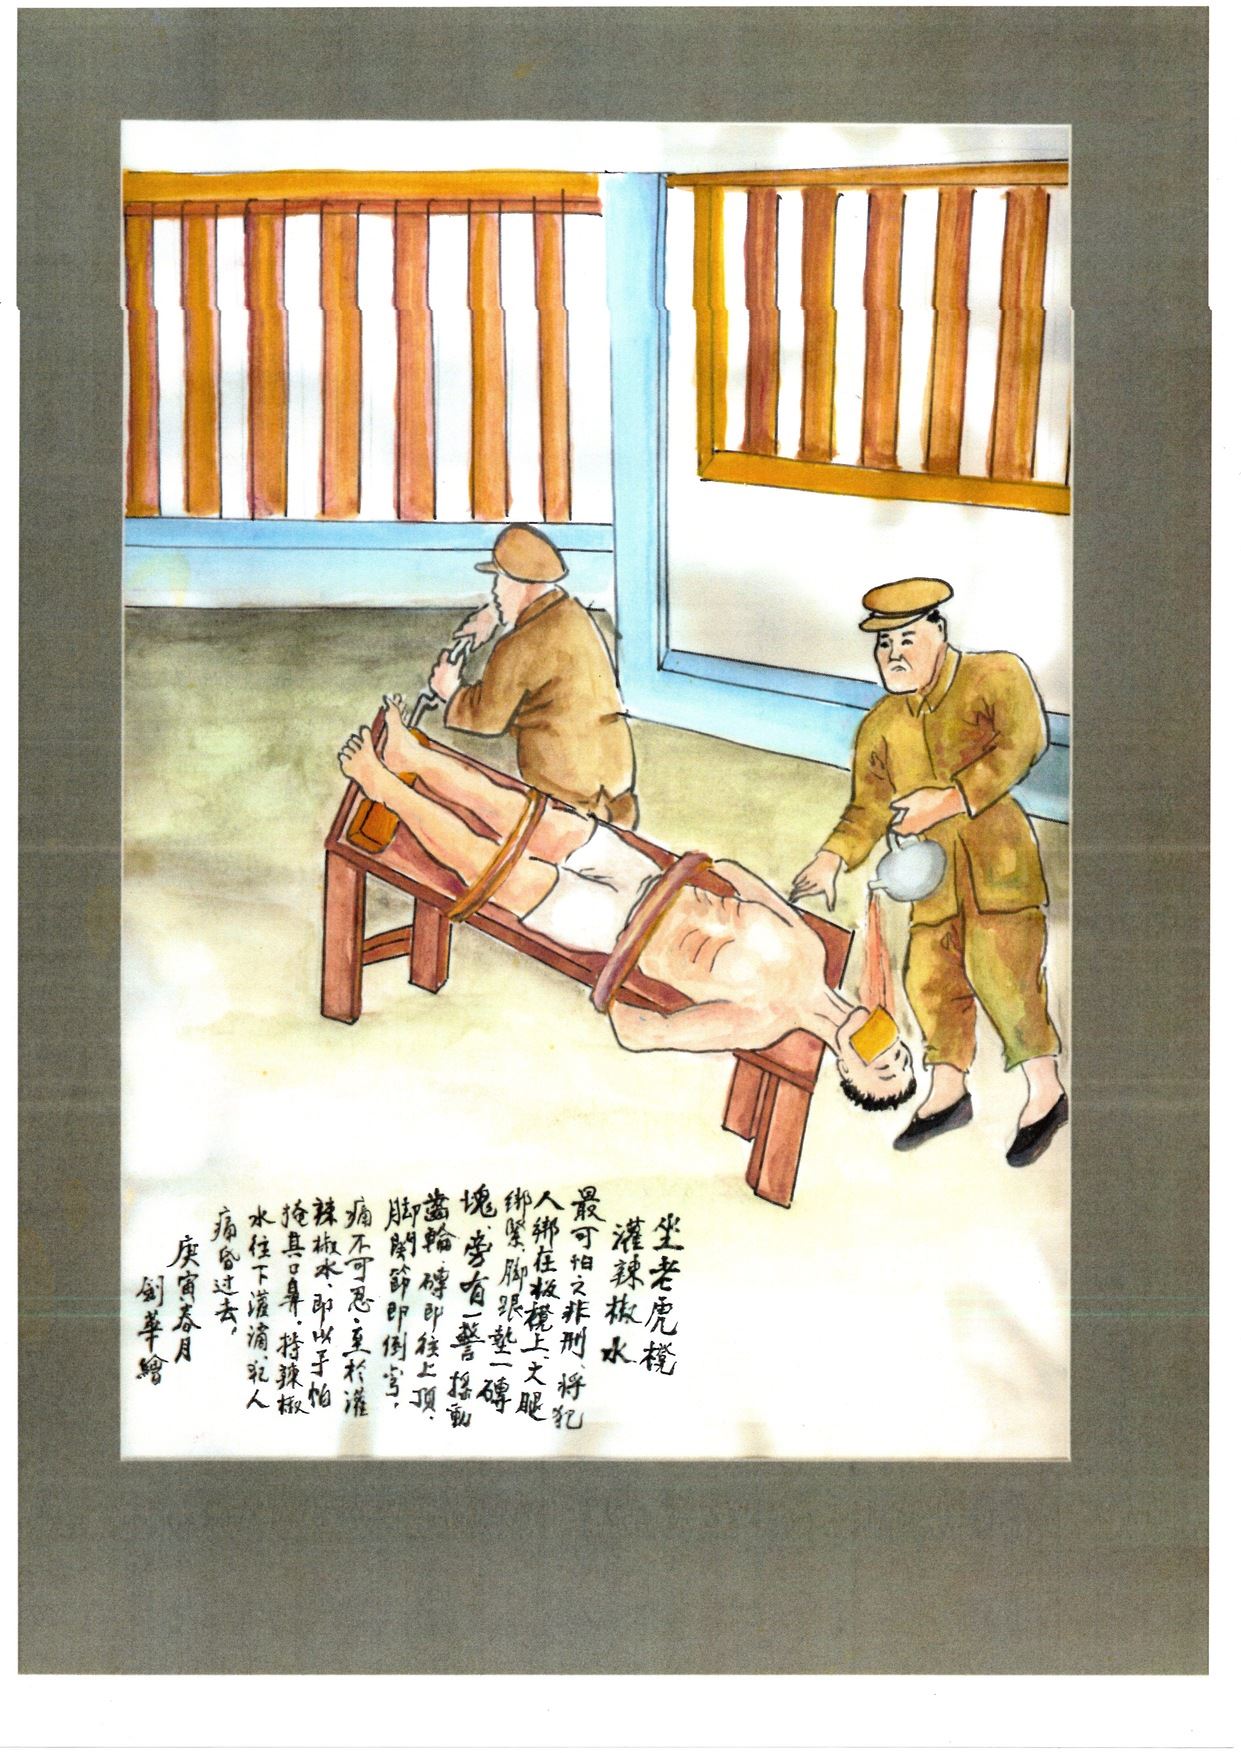 坐老虎櫈
灌辣椒水
最可怕之非刑、將犯
人綁在板櫈上、大腿
綁緊、脚跟墊一磚
塊、旁有一警搖動
齒輪、磚即往上頂、
脚関節即倒弯，
痛不可忍、至於灌
辣椒水、即以手帕
掩其口鼻。持辣椒
水往下灌滴、犯人
痛昏过去，
庚寅春月
劍華繪